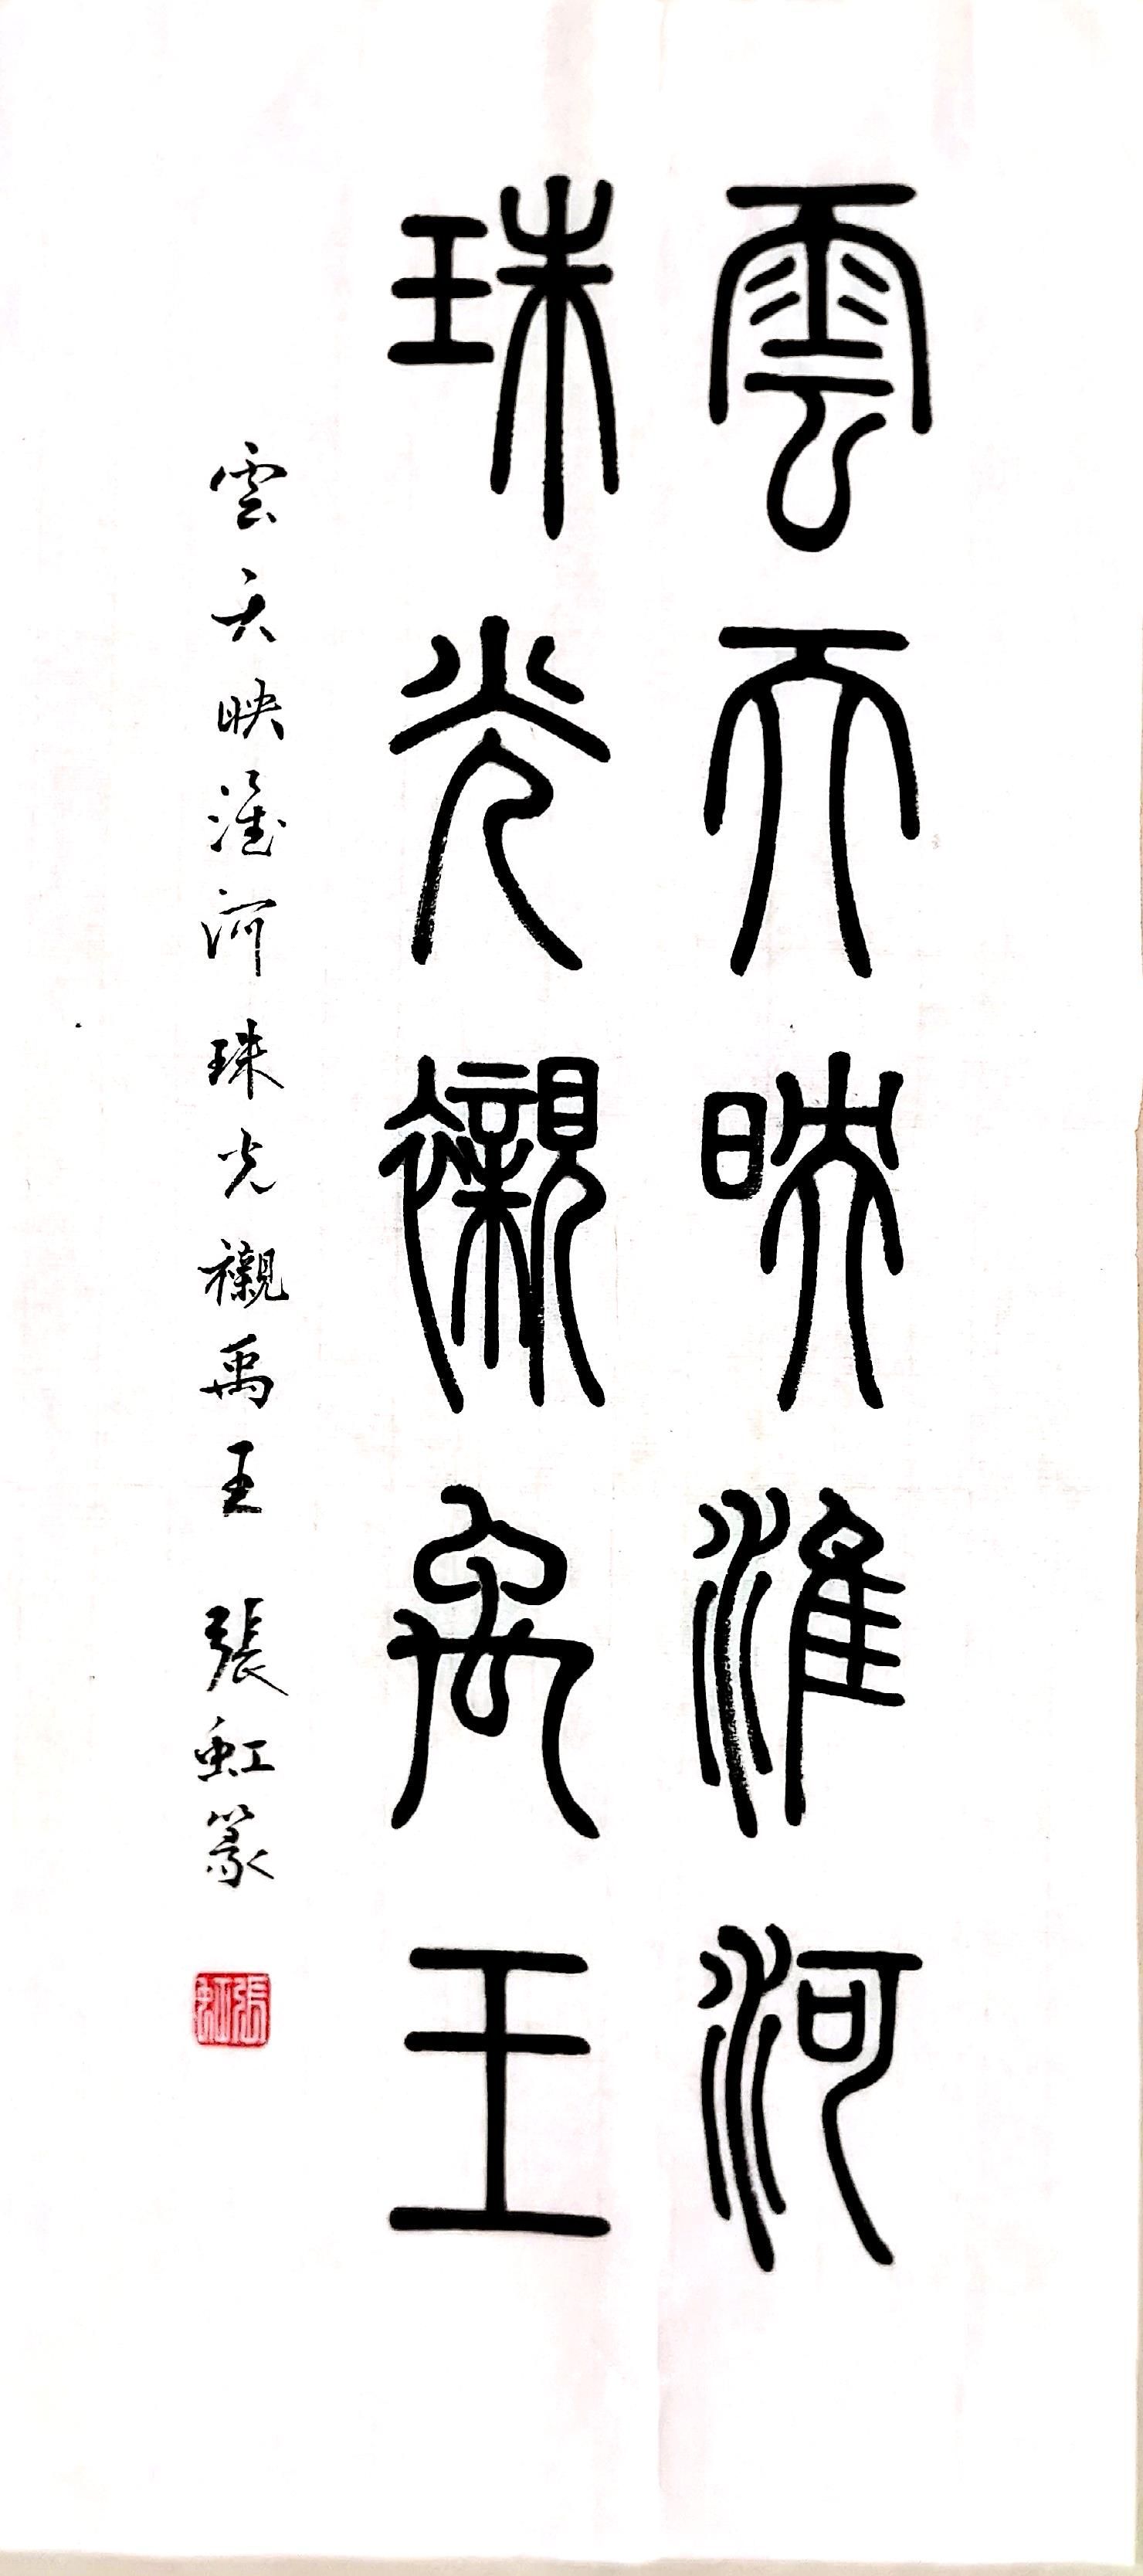 雲天映淮河
珠光襯禹王
雲天映淮河珠光襯禹王 張虹篆
張虹